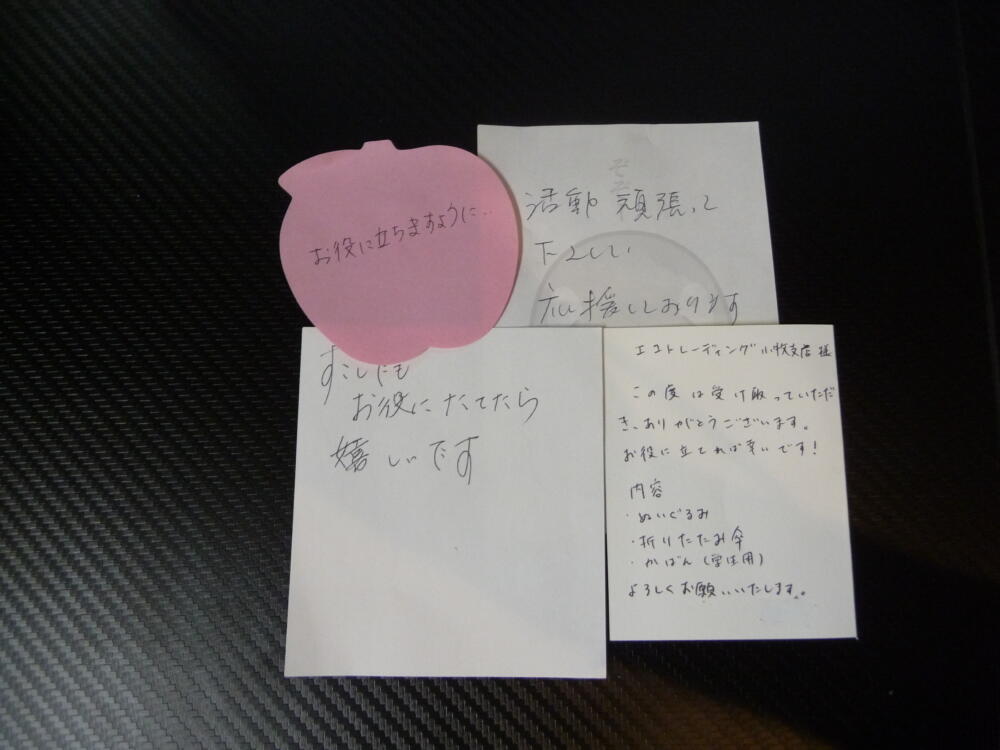 お役に立ちますように…
活動 頑張って
下さい
応援しております
すこしにも
お役にたてたら
嬉しいです
エコトレーディング小牧支店 様
この度は受け取っていただ
き、ありがとうございます。
お役に立てれば幸いです！
内容
・ぬいぐるみ
・折りたたみ傘
・かばん（学生用）
よろしくお願いいたします。